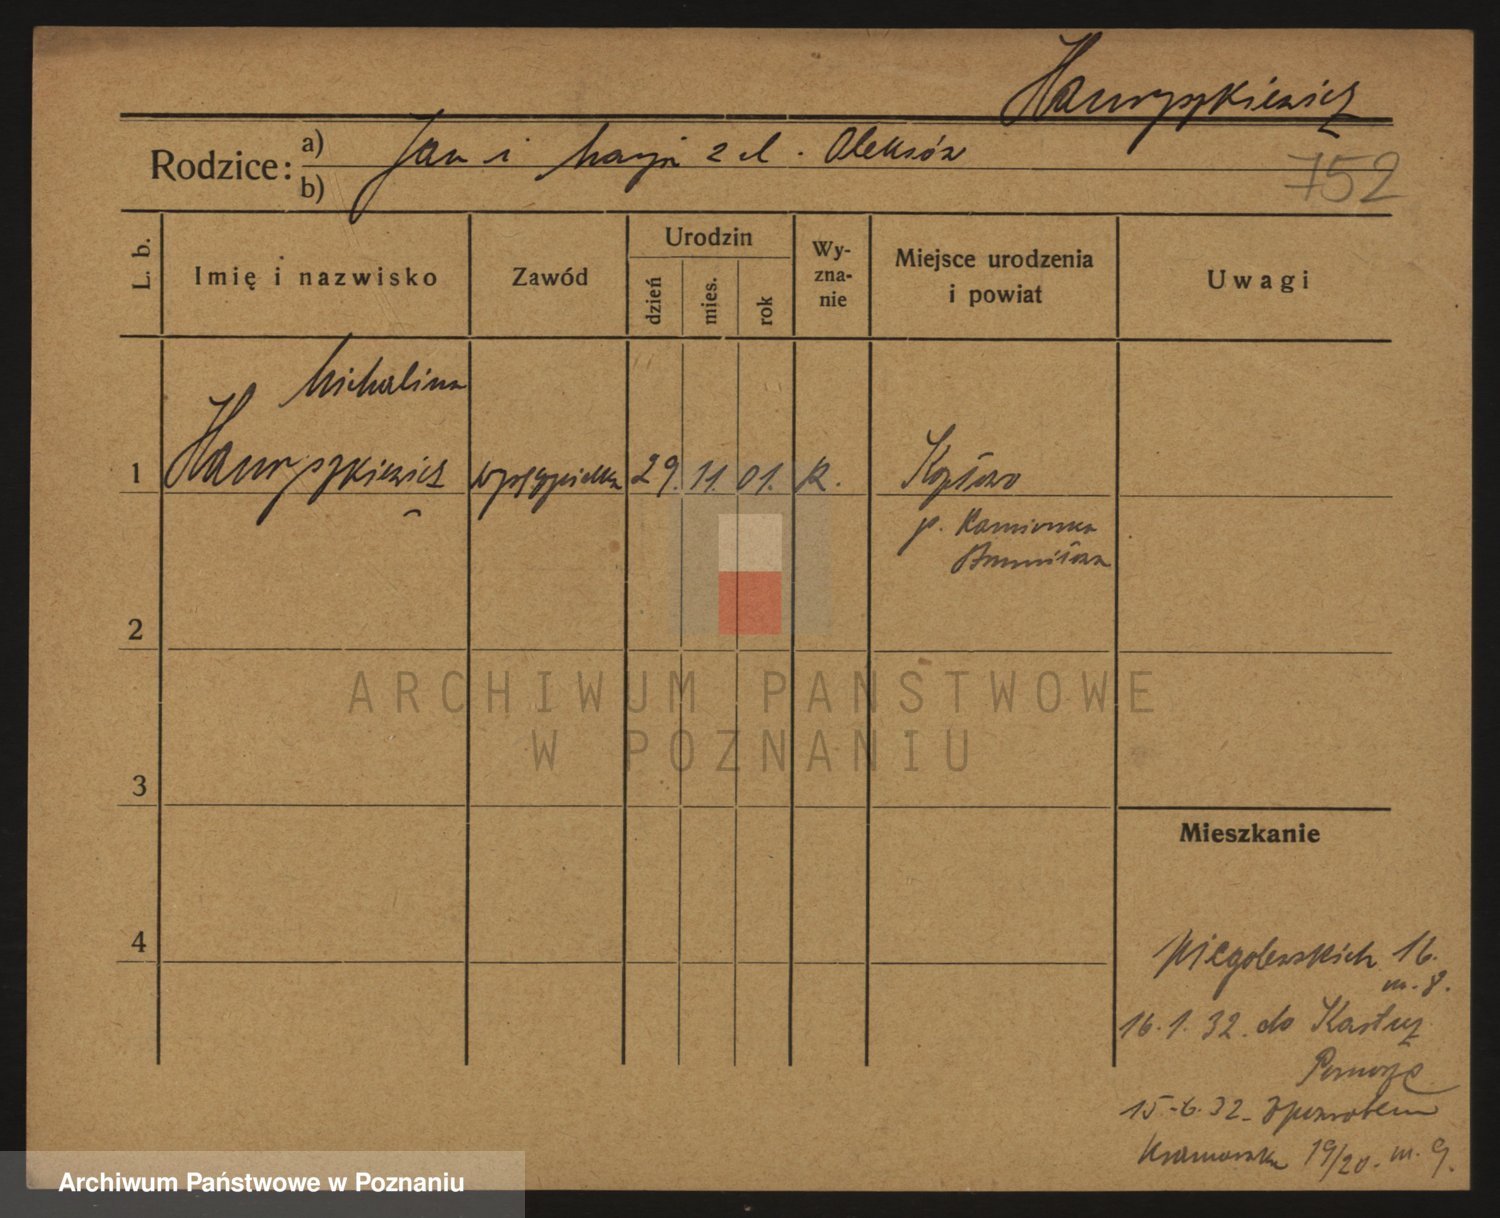 Hawryszkiewicz
Rodzice:
a) Jan i Marja z d. Oleksów
b)
752
L. b.
Imię i nazwisko
Zawód
Urodzin
dzień
mies.
rok
Wy-
zna-
nie
Miejsce urodzenia
i powiat
Uwagi
Michalina
1 Hawryszkiewicz 29. 11. 01. k. Kozłowo
p. Kamionka
2
3
4
ARCHIWUM PAŃSTWOWE
W POZNANIU
Mieszkanie
Niegolewskich 16.
m. 8.
16.1.32. do Kartuz
Pomorze
15.6.32. z powrotem
Kramarska 19/20. m. 9.
Archiwum Państwowe w Poznaniu